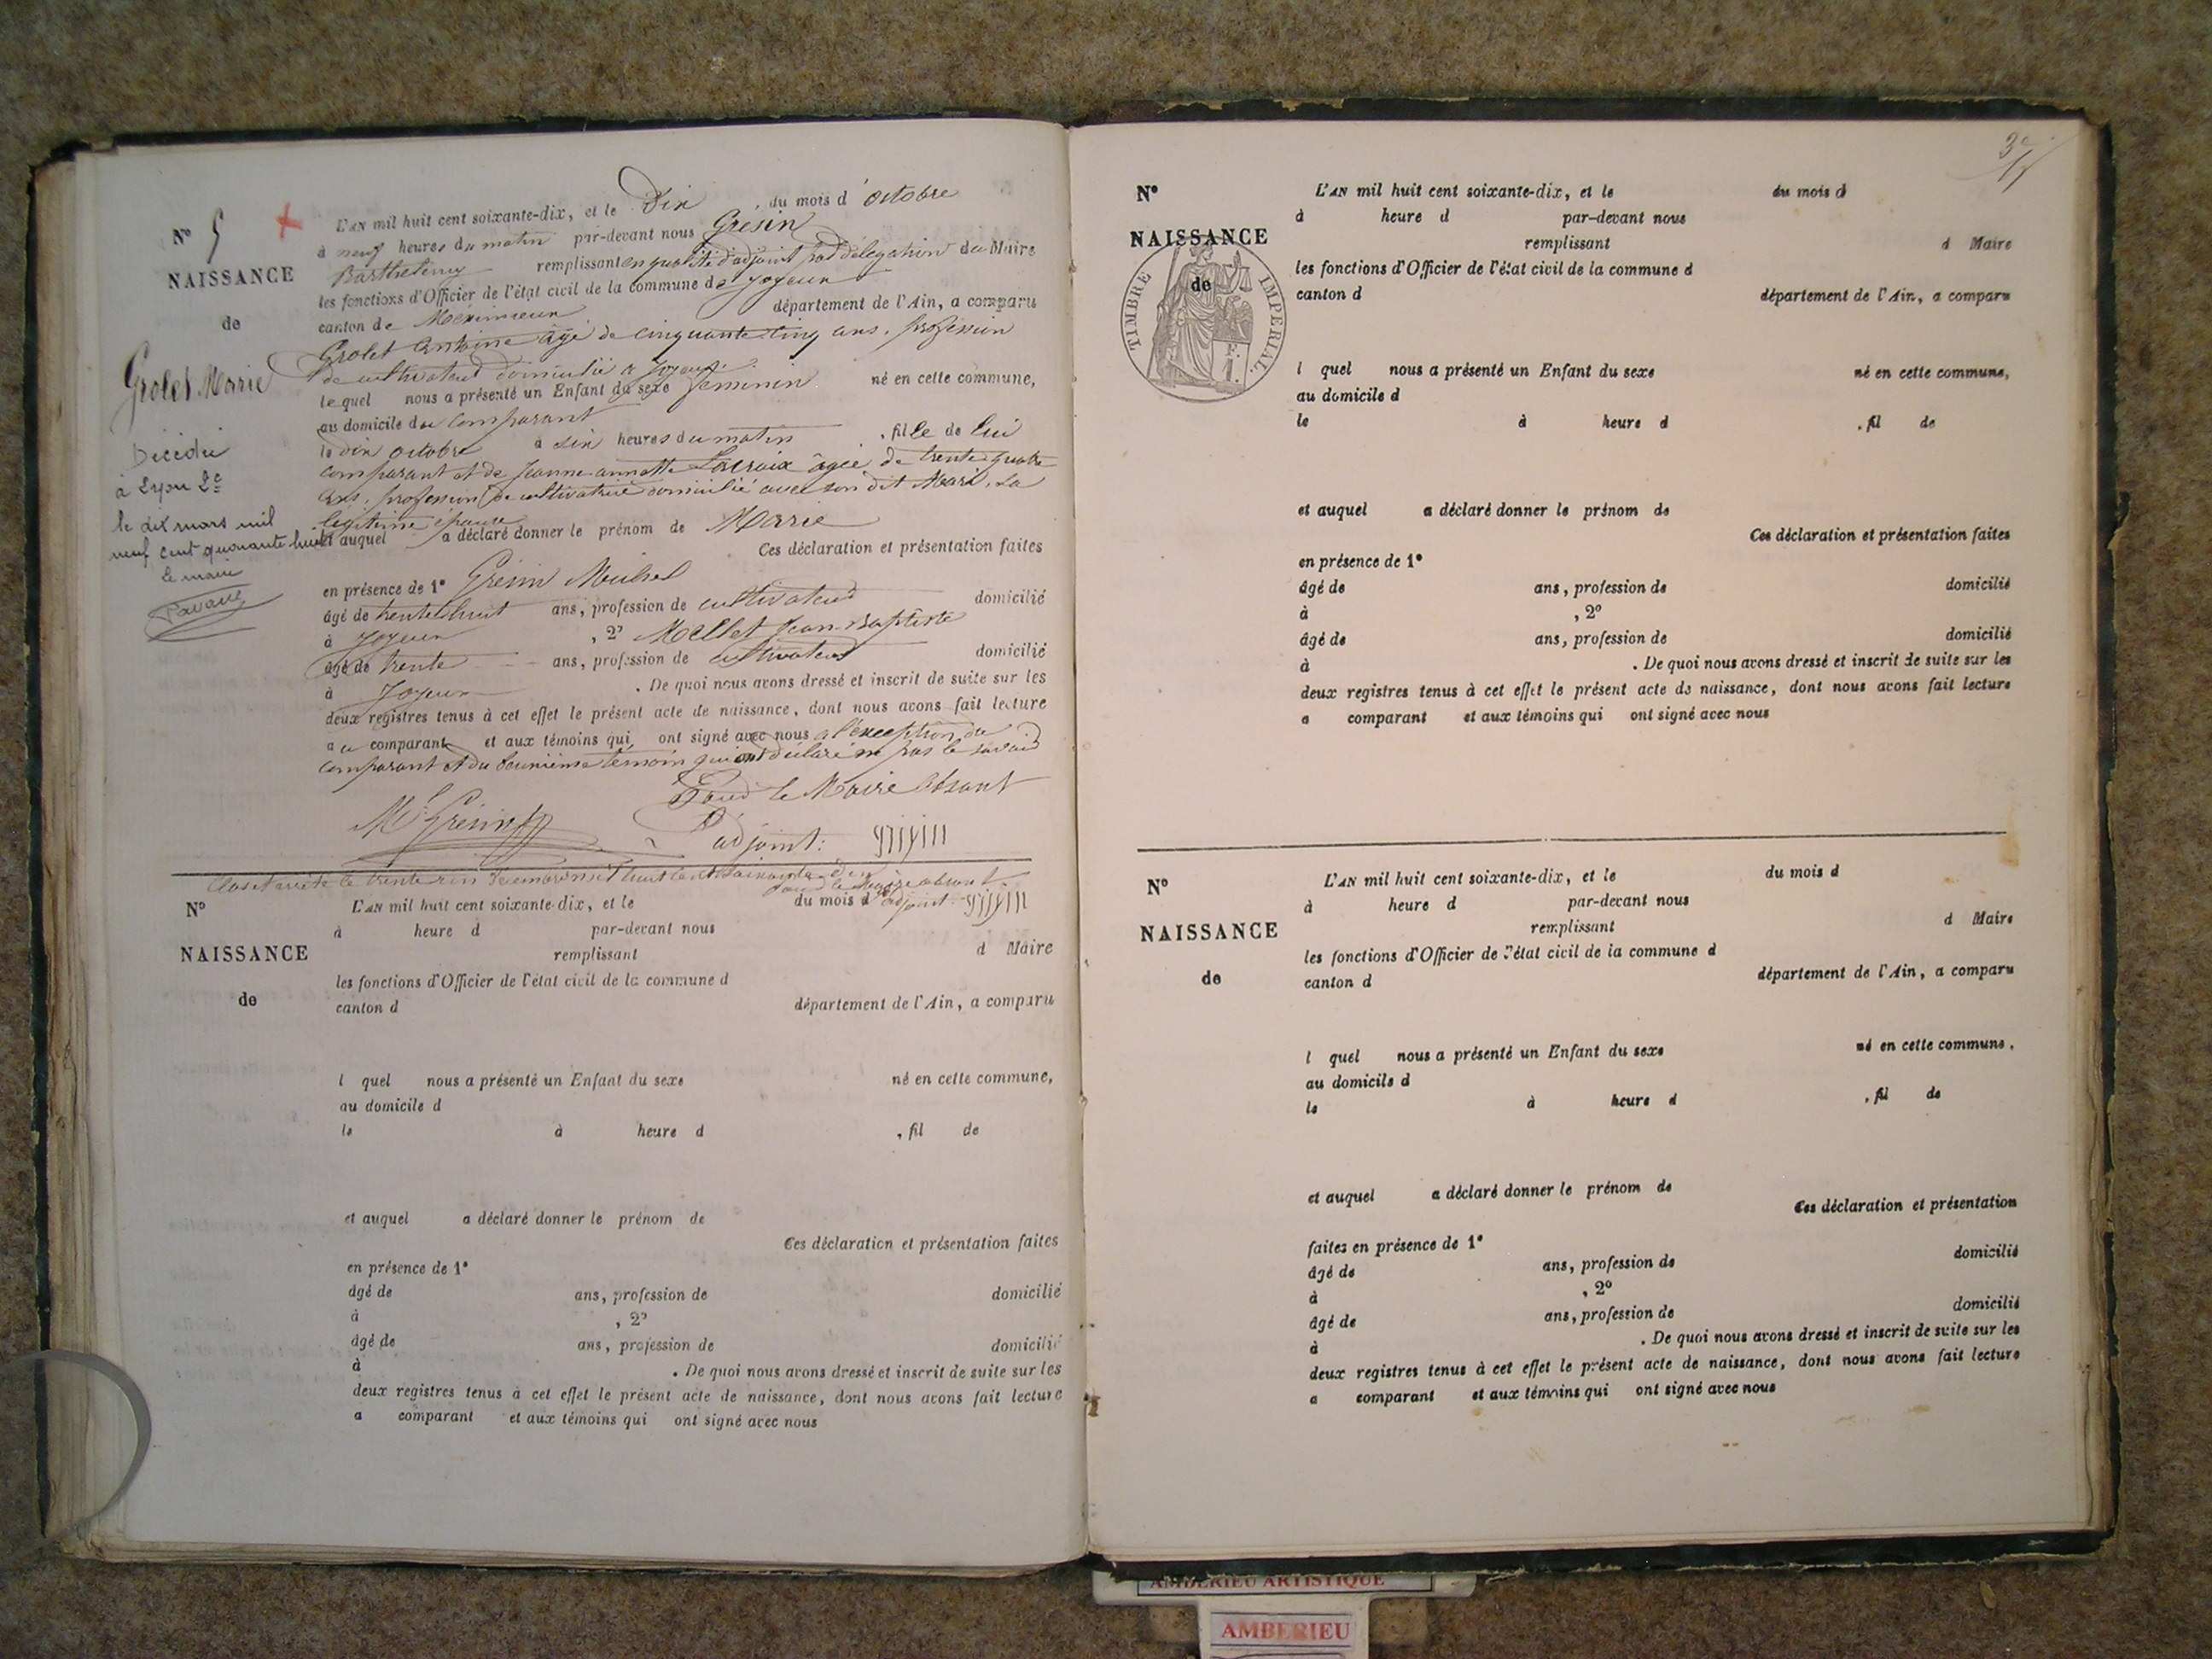 N° 5
NAISSANCE
de
Grolet Marie
Décédée
à Lyon 2e
le dix mars mil
neuf cent quarante huit
le maire
L'AN mil huit cent soixante-dix, et le Dix du mois d'octobre
à neuf heures du matin par-devant nous Gresin
Barthelemy remplissant en qualité d'adjoint par délégation du Maire
les fonctions d'Officier de l'état civil de la commune de Joyeux
canton de Meximieux département de l'Ain, a comparu
Grolet Antoine âgé de cinquante cinq ans, profession
de cultivateur domicilié à Joyeux
lequel nous a présenté un Enfant du sexe féminin né en cette commune,
au domicile du comparant
le dix octobre à six heures du matin, fille de lui
comparant et de Jeanne annette Lacroix âgée de trente quatre
ans, profession de cultivatrice domicilié avec son dit Mari, sa
légitime épouse
et auquel a déclaré donner le prénom de Marie
Ces déclaration et présentation faites
en présence de 1° Grésin Michel
âgé de trente huit ans, profession de cultivateur domicilié
à Joyeux, 2° Mellet Jean Baptiste
âgé de trente ans, profession de cultivateur domicilié
à Joyeux. De quoi nous avons dressé et inscrit de suite sur les
deux registres tenus à cet effet le présent acte de naissance, dont nous avons fait lecture
au comparant et aux témoins qui ont signé avec nous à l'exception du
comparant et du deuxième témoin qui ont déclaré ne pas le savoir
Pour le Maire absent
M Grésin
l'adjoint:
Clos et arrêté le trente un Décembre mil huit cent soixante dix
Pour le Maire absent
l'adjoint
N°
NAISSANCE
de
L'AN mil huit cent soixante-dix, et le du mois d
à heure d par-devant nous
remplissant d Maire
les fonctions d'Officier de l'état civil de la commune d
canton d département de l'Ain, a comparu
l quel nous a présenté un Enfant du sexe né en cette commune,
au domicile d
le à heure d , fil de
et auquel a déclaré donner le prénom de
Ces déclaration et présentation faites
en présence de 1°
âgé de ans, profession de domicilié
à , 2°
âgé de ans, profession de domicilié
à . De quoi nous avons dressé et inscrit de suite sur les
deux registres tenus à cet effet le présent acte de naissance, dont nous avons fait lecture
a comparant et aux témoins qui ont signé avec nous
N°
NAISSANCE
de
TIMBRE IMPERIAL
L'AN mil huit cent soixante-dix, et le du mois d
à heure d par-devant nous
remplissant d Maire
les fonctions d'Officier de l'état civil de la commune d
canton d département de l'Ain, a comparu
l quel nous a présenté un Enfant du sexe né en cette commune,
au domicile d
le à heure d , fil de
et auquel a déclaré donner le prénom de
Ces déclaration et présentation faites
en présence de 1°
âgé de ans, profession de domicilié
à , 2°
âgé de ans, profession de domicilié
à . De quoi nous avons dressé et inscrit de suite sur les
deux registres tenus à cet effet le présent acte de naissance, dont nous avons fait lecture
a comparant et aux témoins qui ont signé avec nous
N°
NAISSANCE
de
L'AN mil huit cent soixante-dix, et le du mois d
à heure d par-devant nous
remplissant d Maire
les fonctions d'Officier de l'état civil de la commune d
canton d département de l'Ain, a comparu
l quel nous a présenté un Enfant du sexe né en cette commune,
au domicile d
le à heure d , fil de
et auquel a déclaré donner le prénom de
Ces déclaration et présentation
faites en présence de 1°
âgé de ans, profession de domicilié
à , 2°
âgé de ans, profession de domicilié
à . De quoi nous avons dressé et inscrit de suite sur les
deux registres tenus à cet effet le présent acte de naissance, dont nous avons fait lecture
a comparant et aux témoins qui ont signé avec nous
AMBERIEU ARTISTIQUE
AMBERIEU